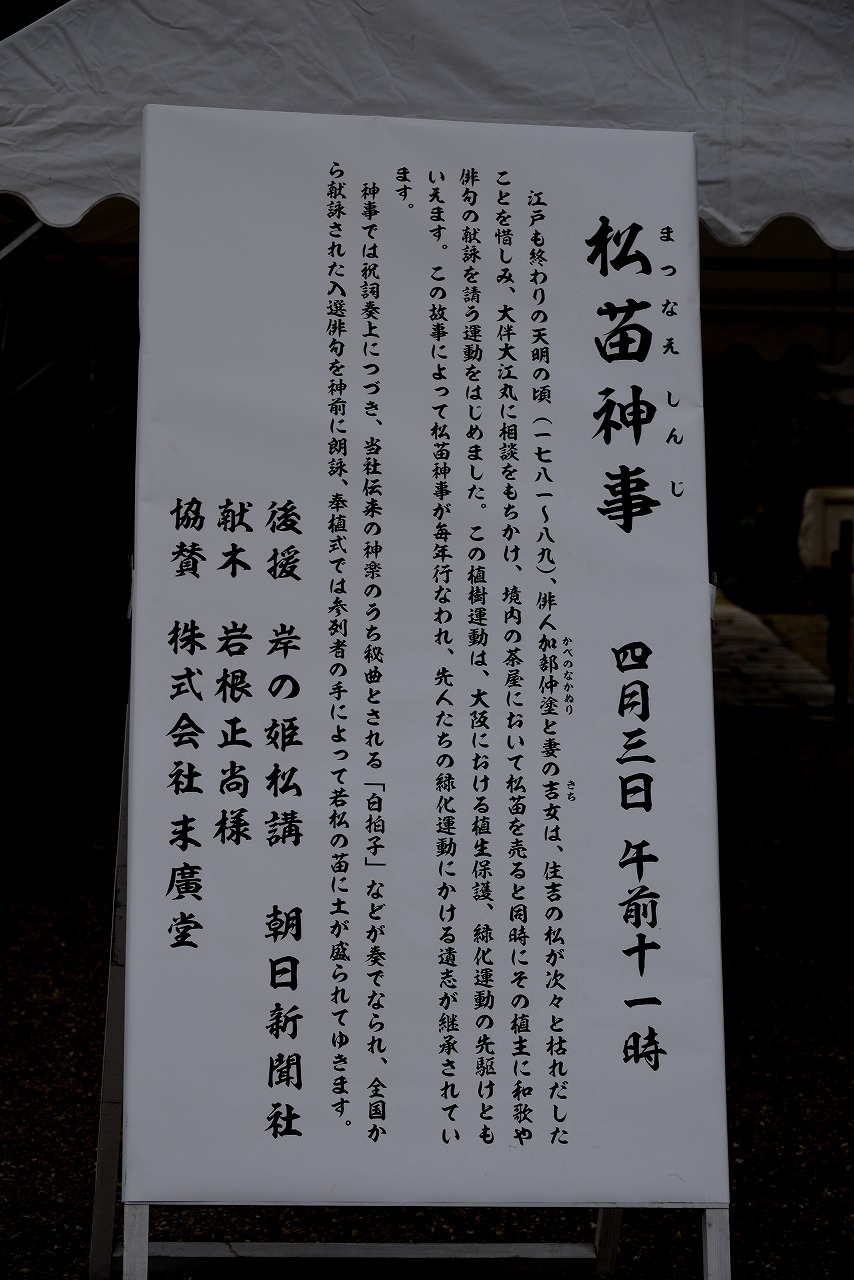 松苗神事 四月三日 午前十一時
まつなえ しんじ
江戸も終わりの天明の頃（一七八一〜八九）、俳人加部仲塗と妻の吉女は、住吉の松が次々と枯れだした
かべのなかぬり
きち
ことを惜しみ、大伴大江丸に相談をもちかけ、境内の茶屋において松苗を売ると同時にその植主に和歌や
俳句の献詠を請う運動をはじめました。この植樹運動は、大阪における植生保護、緑化運動の先駆けとも
いえます。この故事によって松苗神事が毎年行なわれ、先人たちの緑化運動にかける遺志が継承されてい
ます。
神事では祝詞奏上につづき、当社伝来の神楽のうち秘曲とされる「白拍子」などが奏でられ、全国か
ら献詠された入選俳句を神前に朗詠、奉植式では参列者の手によって若松の苗に土が盛られてゆきます。
後援 岸の姫松講 朝日新聞社
献木 岩根正尚様
協賛 株式会社末廣堂